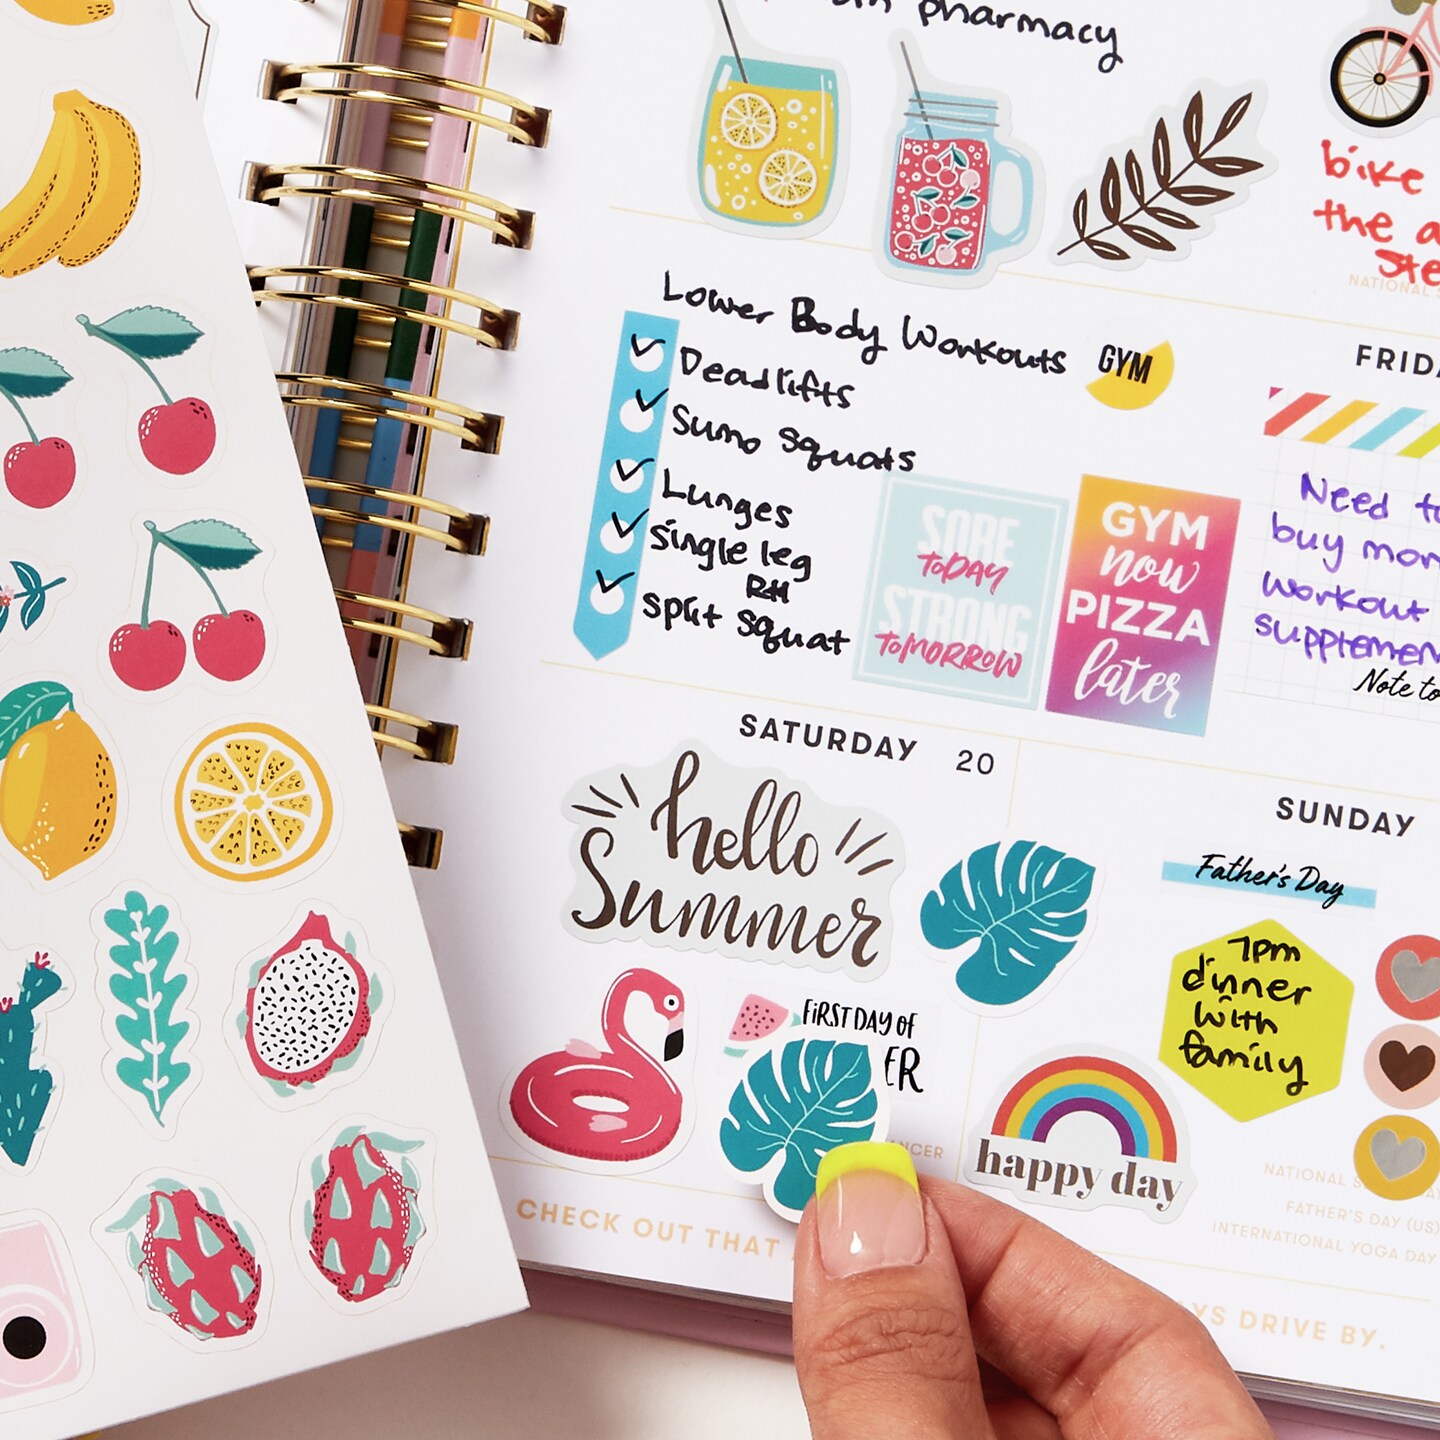 pharmacy
bike
the
NATIONAL
Lower Body Workouts
GYM
Deadlifts
Sumo Squats
Lunges
Single leg
split squat
SORE
TODAY
STRONG
TOMORROW
GYM
now
PIZZA
later
Need
buy
workout
Note to
SATURDAY 20
hello
Summer
FIRST DAY OF
CHECK OUT THAT
SUNDAY
Father's Day
7pm
dinner
with
family
happy day
NATIONAL
FATHER'S DAY (US)
INTERNATIONAL YOGA DAY
DRIVE BY.